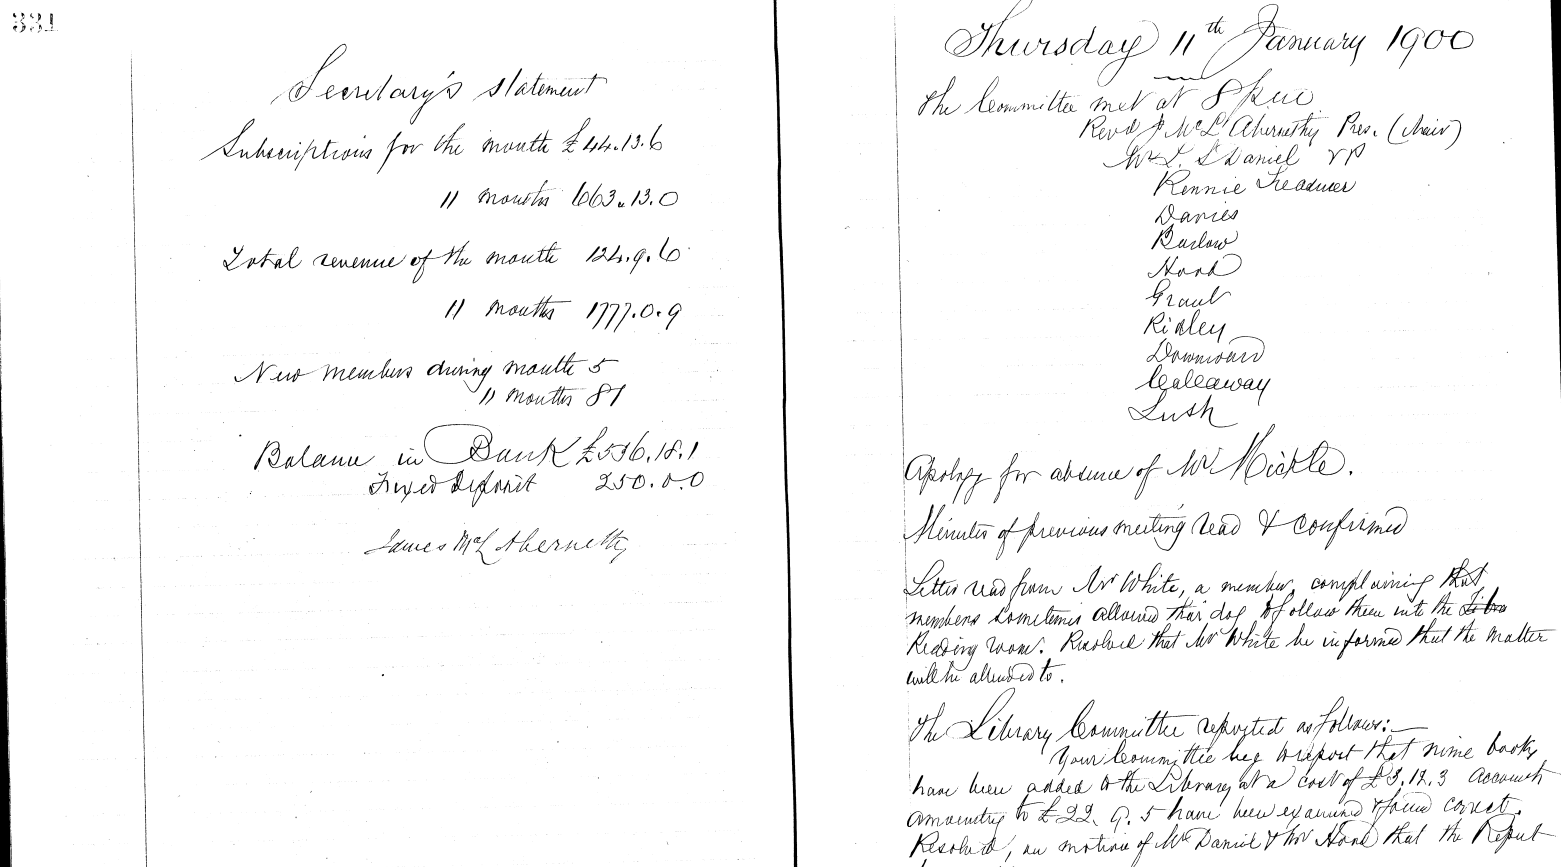 331
Secretary's statement
Subscriptions for the month £44.13.6
11 months 663.13.0
Total revenue of the month 124.9.6
11 months 1777.0.9
New members during month 5
11 months 81
Balance in Bank £536.18.1
Fixed Deposit 250.0.0
James McL Abernethy
Thursday 11th January 1900
The Committee met at 8 p.m.
Revd J McL Abernethy Pres. (Chair)
Mr L. S Daniel VP
Rennie Treasurer
Davies
Barlow
Hood
Grant
Ridley
Downward
Callaway
Lush
Apology for absence of Mr Mickle.
Minutes of previous meeting read & confirmed
Letter read from Mr White, a member, complaining that
members sometimes allowed their dog to follow them into the Libra
Reading room. Resolved that Mr White be informed that the matter
will be attended to.
The Library Committee reported as follows:—
Your Committee beg to report that nine books
have been added to the Library at a cost of £3.12.3 Accounts
amounting to £22.9.5 have been examined & found correct.
Resolved, on motion of Mr Daniel & Mr Hood that the Report